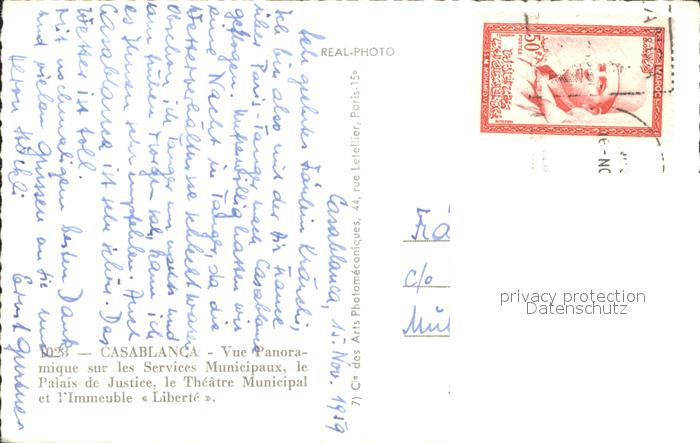 REAL-PHOTO
Casablanca, 15. Nov. 1959
Sehr geehrtes Fräulein
Ich bin also mit der Air France
über Paris-Tanger nach Casablanca
geflogen. Unfreiwillig hatten wir
eine Nacht in Tanger, da die
Wetterverhältnisse schlecht waren.
Obschon ich Tanger nur nachts und
am frühen Morgen sah, kann ich
es Ihnen sehr empfehlen. Auch
Casablanca ist sehr schön. Das
Wetter ist toll.
Mit nochmaligem besten Dank
und vielen Grüssen an Sie und
Herrn
Ernst
7) Cie des Arts Photomécaniques, 44, rue Letellier, Paris-15e
1023 — CASABLANCA - Vue Panora-
mique sur les Services Municipaux, le
Palais de Justice, le Théâtre Municipal
et l'Immeuble « Liberté ».
MAROC
50F
POSTES
S.M. MOHAMED V
c/o
privacy protection
Datenschutz